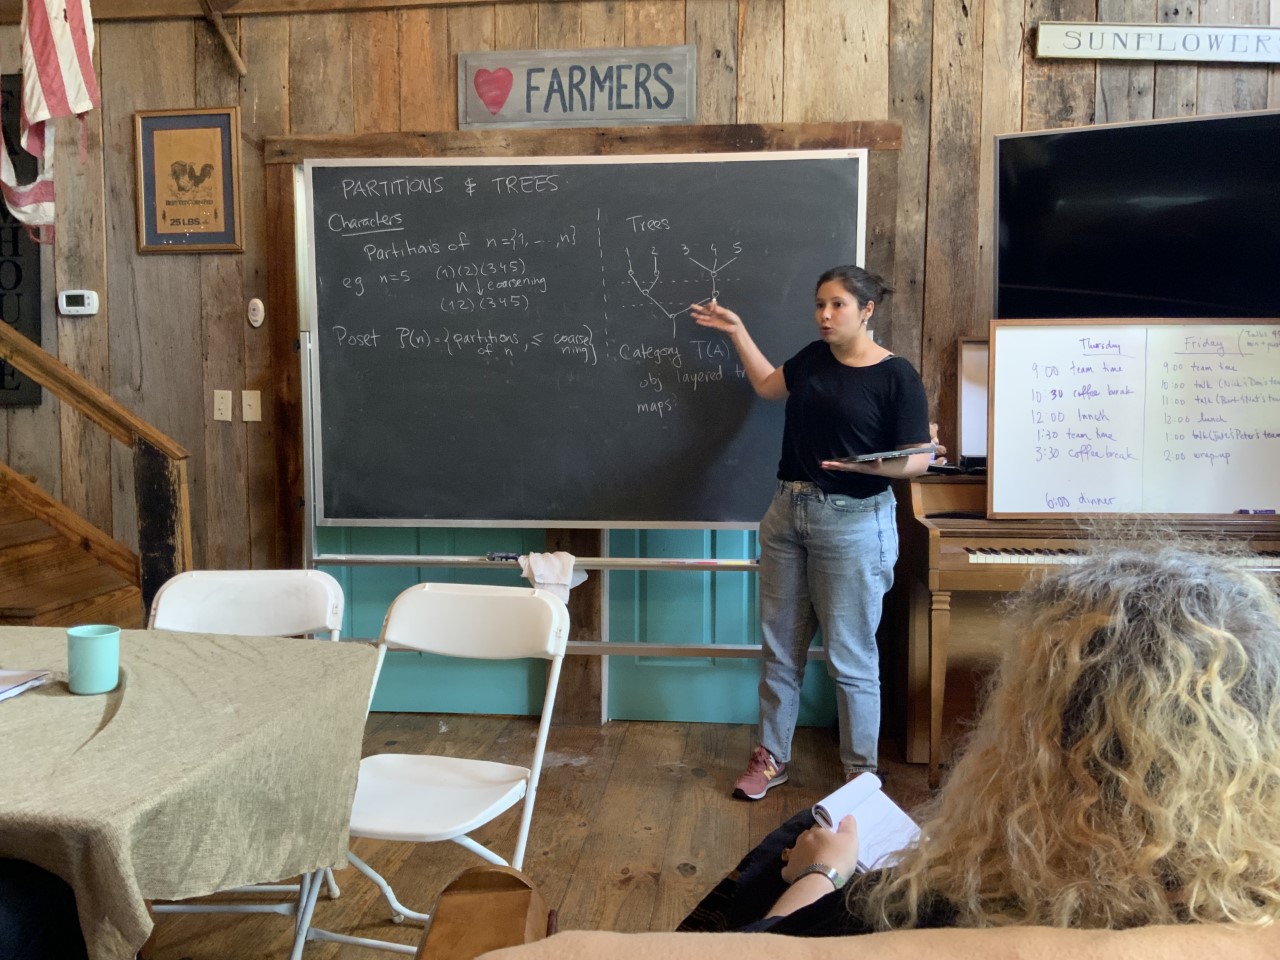 ♥ FARMERS
SUNFLOWER
25 LBS
HOUSE
PARTITIONS & TREES
Characters
Partitions of n={1, ..., n}
eg n=5 (1)(2)(345)
↓ coarsening
(12)(345)
Poset P(n)={partitions of n, ≤ coarsening}
Trees
1 2 3 4 5
Category T(A)
obj layered tr
maps:
Thursday
9:00 team time
10:30 coffee break
12:00 lunch
1:30 team time
3:30 coffee break
6:00 dinner
Friday
9:00 team time
10:00 talk
11:00 talk
12:00 lunch
1:00 talk
2:00 wrap up